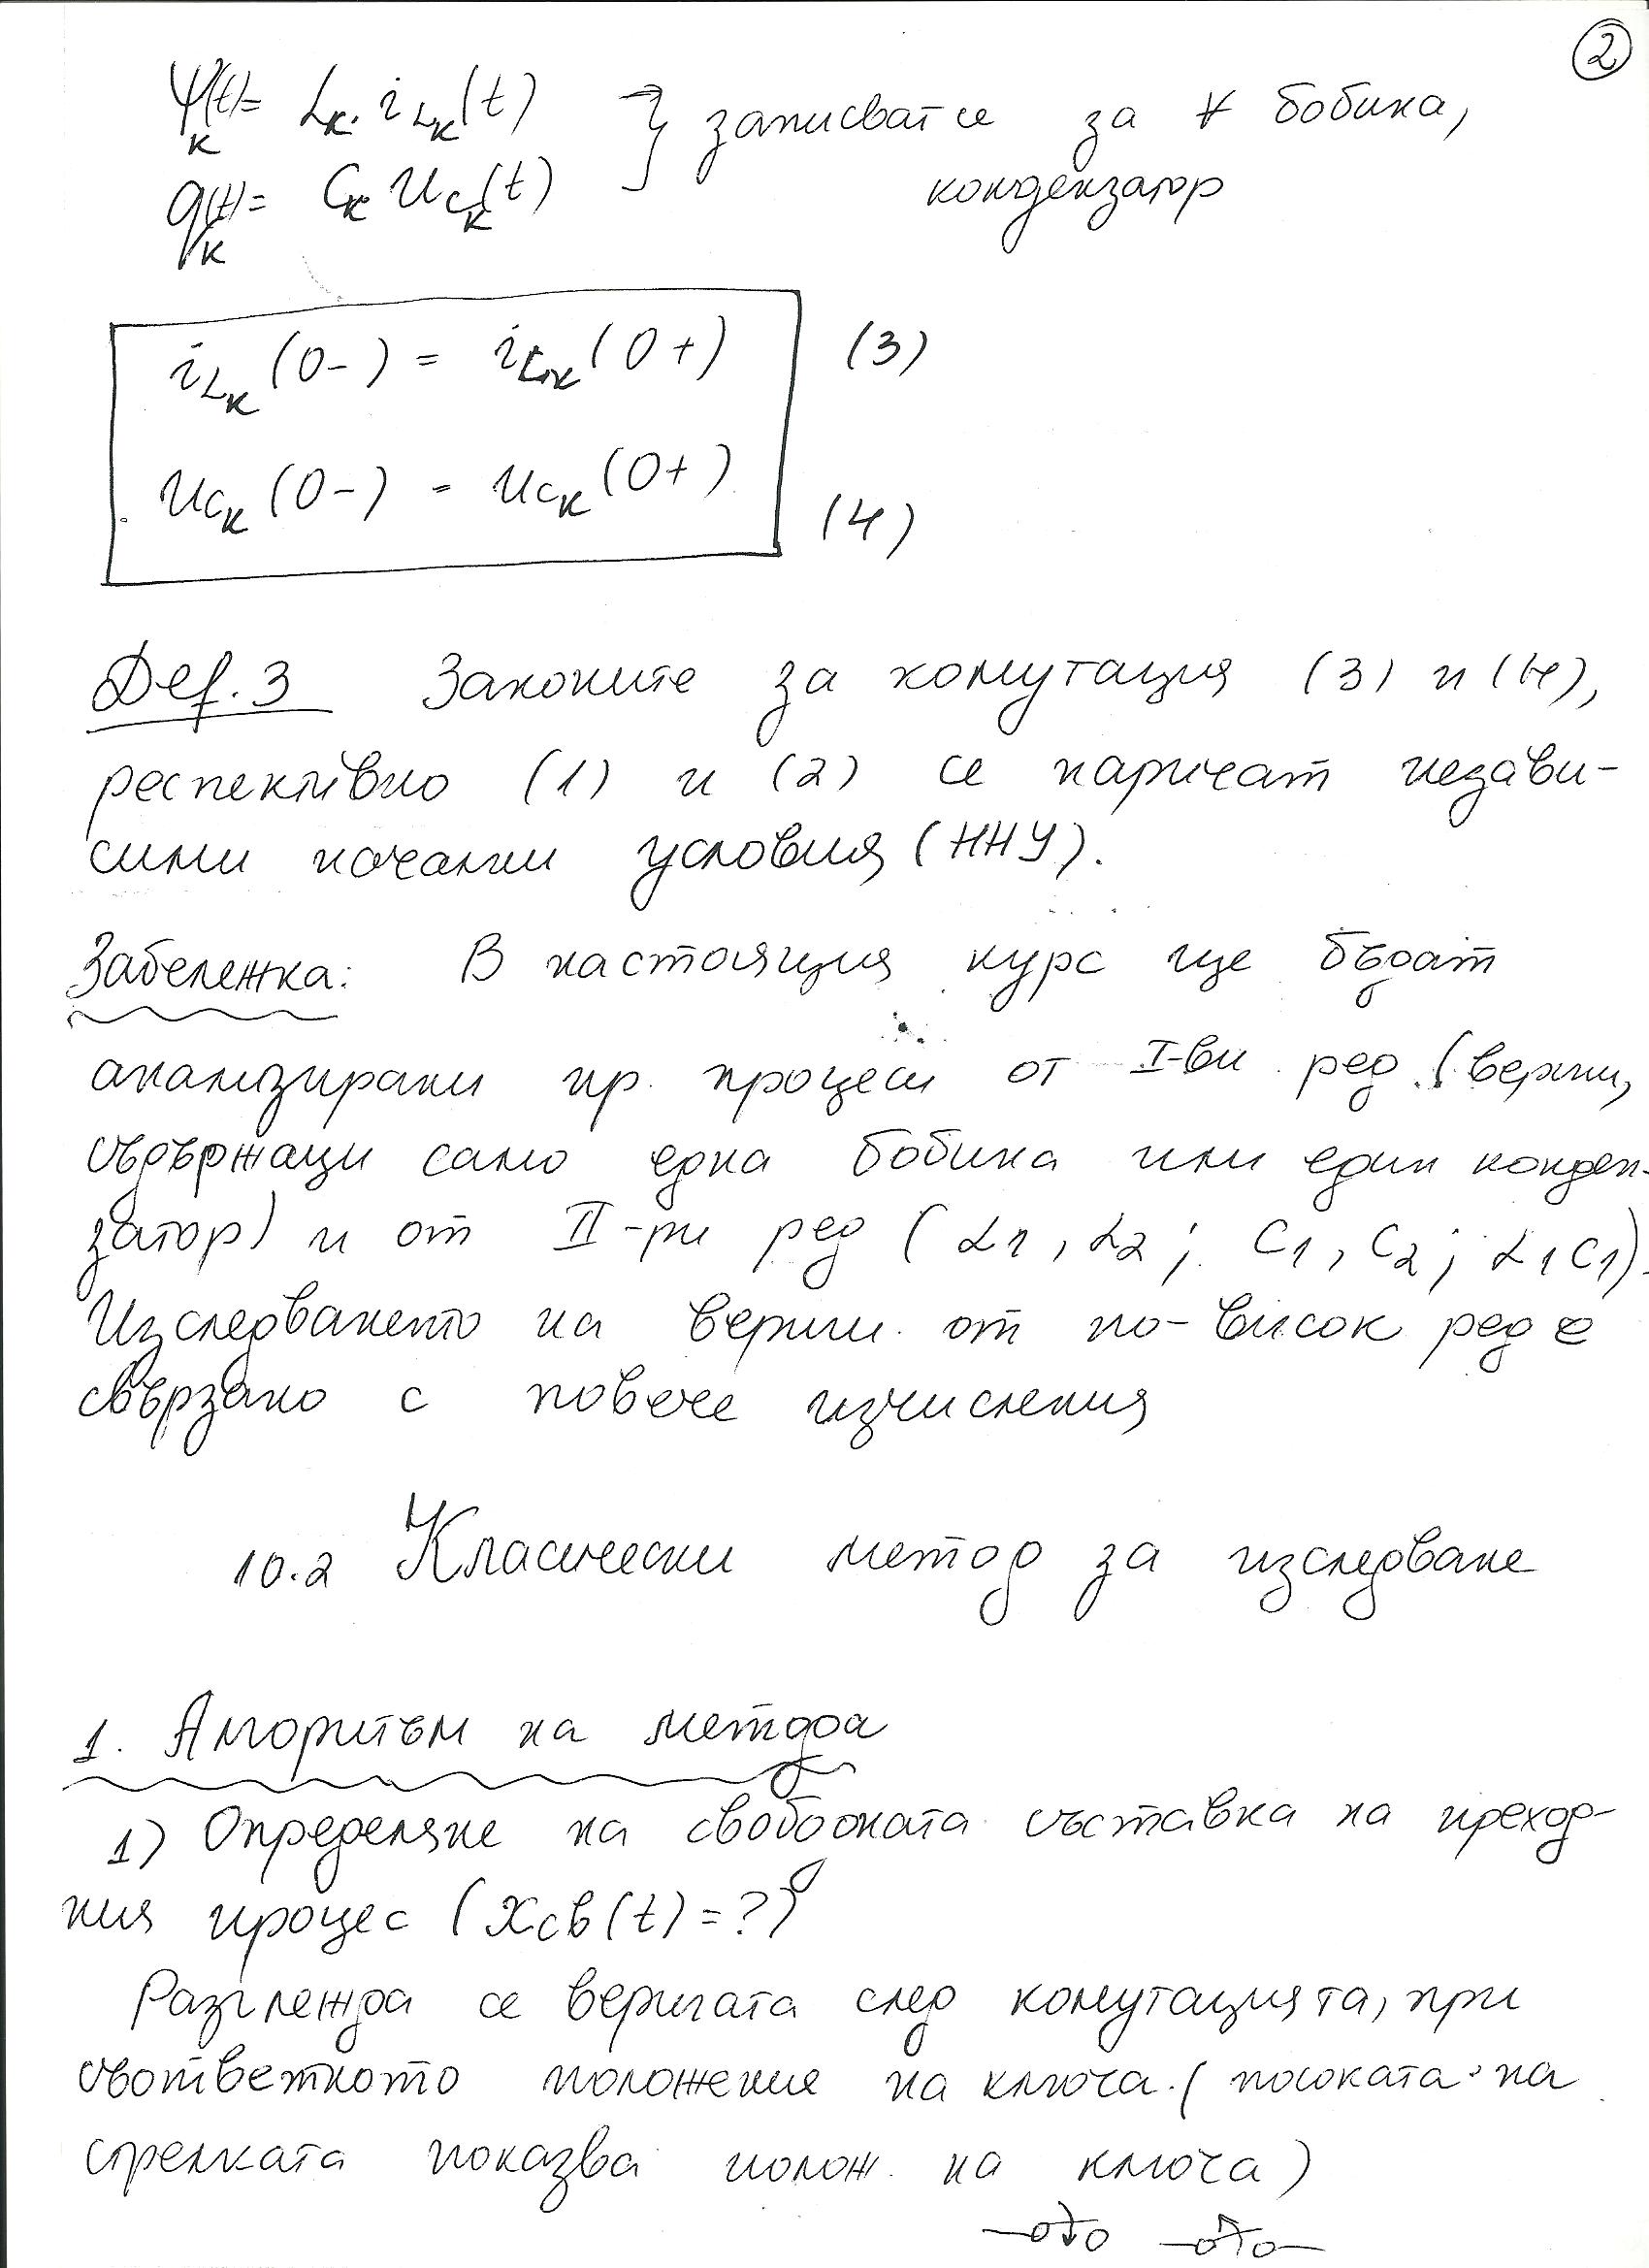 2
Ψk(t) = Lk.iLk(t) } записват се за ∀ бобина,
qk(t) = Ck uCk(t) кондензатор
iLk(0-) = iLk(0+) (3)
uCk(0-) = uCk(0+) (4)
Def.3 Законите за комутация (3) и (4),
респективно (1) и (2) се наричат незави-
сими начални условия (ННУ).
Забележка: В настоящия курс ще бъдат
анализирани пр. процеси от I-ви ред (вериги,
съдържащи само една бобина или един конден-
затор) и от II-ри ред (L1, L2; C1, C2; L1C1).
Изследването на вериги от по-висок ред е
свързано с повече изчисления
10.2 Класически метод за изследване
1. Алгоритъм на метода
1) Определяне на свободната съставка на преход-
ния процес (xсв(t)=?)
Разглежда се веригата след комутацията, при
съответното положение на ключа (посоката на
стрелката показва полож. на ключа)